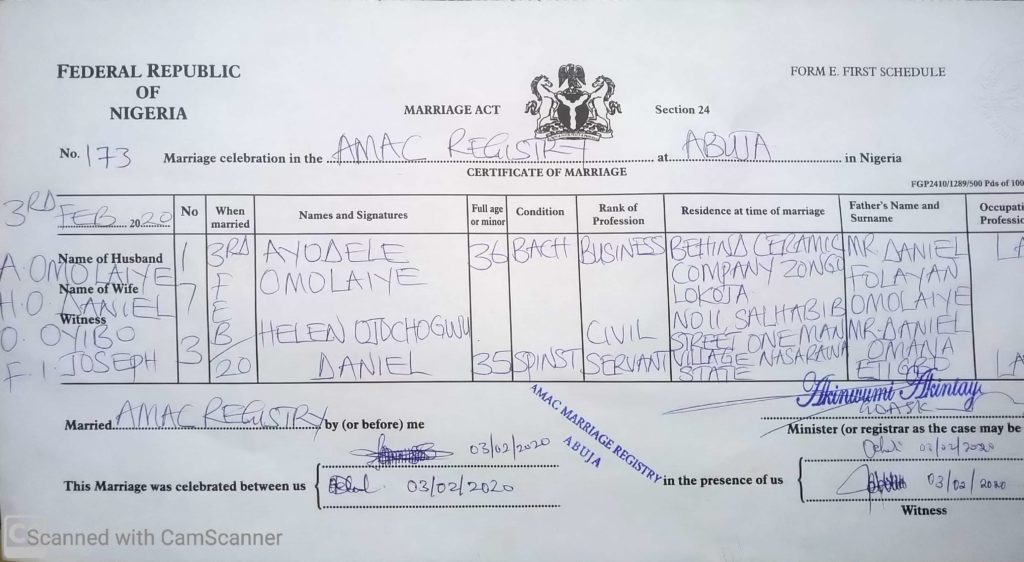 FEDERAL REPUBLIC
OF
NIGERIA
FORM E. FIRST SCHEDULE
MARRIAGE ACT
Section 24
No. 173 Marriage celebration in the AMAC REGISTRY at ABUJA in Nigeria
CERTIFICATE OF MARRIAGE
FGP2410/1289/500 Pds of 100
3RD
FEB 2020
No
When married
Names and Signatures
Full age or minor
Condition
Rank of Profession
Residence at time of marriage
Father's Name and Surname
Occupati
Professio
Name of Husband
A. OMOLAIYE
Name of Wife
H.O. DANIEL
Witness
O. OYIBO
F. I. JOSEPH
173
3RD
FEB
20
AYODELE
OMOLAIYE
36
BACH
BUSINESS
BEHIND CERAMIC
COMPANY ZONGO
LOKOJA
MR. DANIEL
FOLAYAN
OMOLAIYE
HELEN OJOCHOGWU
DANIEL
35
SPINST
CIVIL
SERVANT
NO11 SALHABIB
STREET ONE MAN
VILLAGE NASARAWA
STATE
MR. DANIEL
OMANIA
Married AMAC REGISTRY by (or before) me
AMAC MARRIAGE REGISTRY
ABUJA
Akinwumi Akintay
Minister (or registrar as the case may be
03/02/2020
03/02/2020
This Marriage was celebrated between us
03/02/2020
in the presence of us
03/02/2020
Witness
Scanned with CamScanner